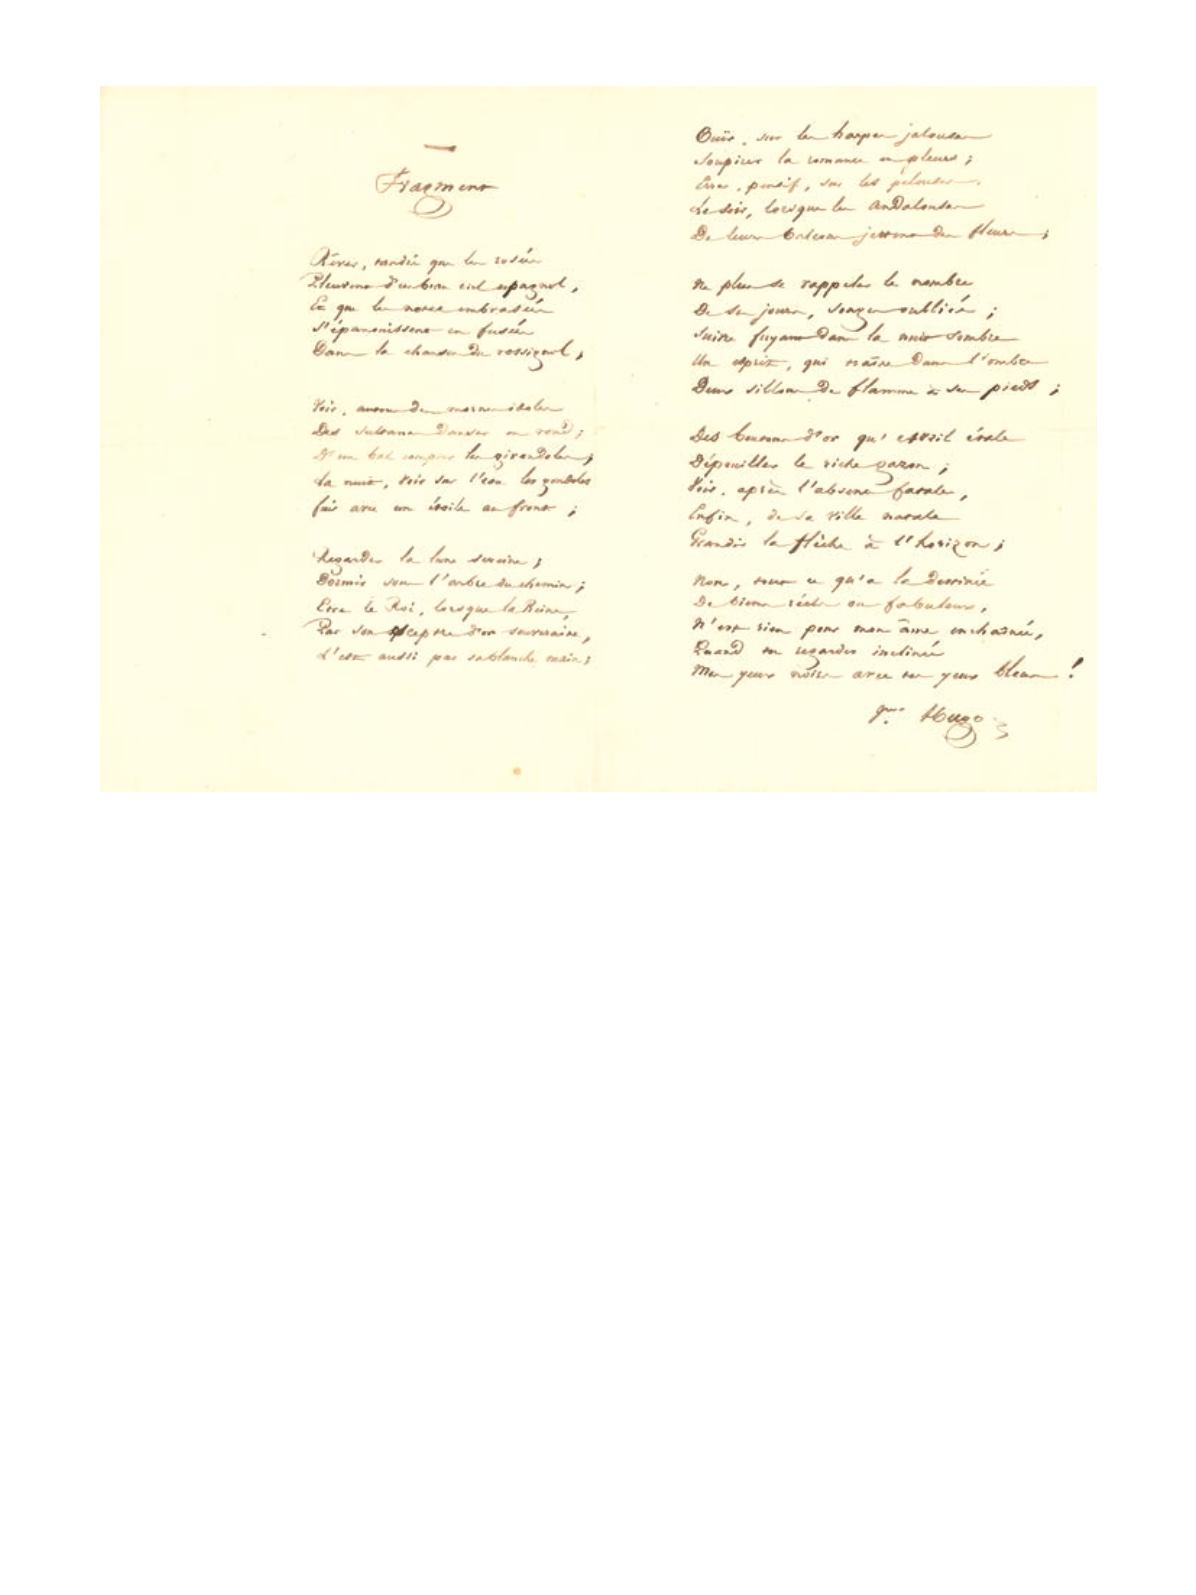 Fragment
Rêver, tandis que les rosées
Pleuvent d'un beau ciel espagnol,
Et que les notes embrasées
S'épanouissent en fusées
Dans la chanson du rossignol ;
Voir, autour de mornes idoles
Des sultanes danser en rond ;
D'un bal compter les girandoles ;
La nuit, voir sur l'eau les gondoles
fuir avec un étoile au front ;
Regarder la lune sereine ;
Dormir sous l'arbre du chemin ;
Etre le Roi, lorsque la Reine,
Par son sceptre d'or souveraine,
L'est aussi par sa blanche main ;
Ouïr, sur les harpes jalouses
Soupirer la romance en pleurs ;
Errer, pensif, sur les pelouses,
Le soir, lorsque les Andalouses
De leurs balcons jettent des fleurs ;
Ne plus se rappeler le nombre
De ses jours, songes oubliés ;
Suivre fuyant dans la nuit sombre
Un esprit, qui traîne dans l'ombre
Deux sillons de flamme à ses pieds ;
Des boutons d'or qu'avril étale
Dépouiller le riche gazon ;
Voir, après l'absence fatale,
Enfin, de sa ville natale
Grandir la flèche à l'horizon ;
Non, tout ce qu'a la destinée
De biens réels ou fabuleux,
N'est rien pour mon âme enchaînée,
Quand tu regardes inclinée
Mes yeux noirs avec tes yeux bleus !
Hugo